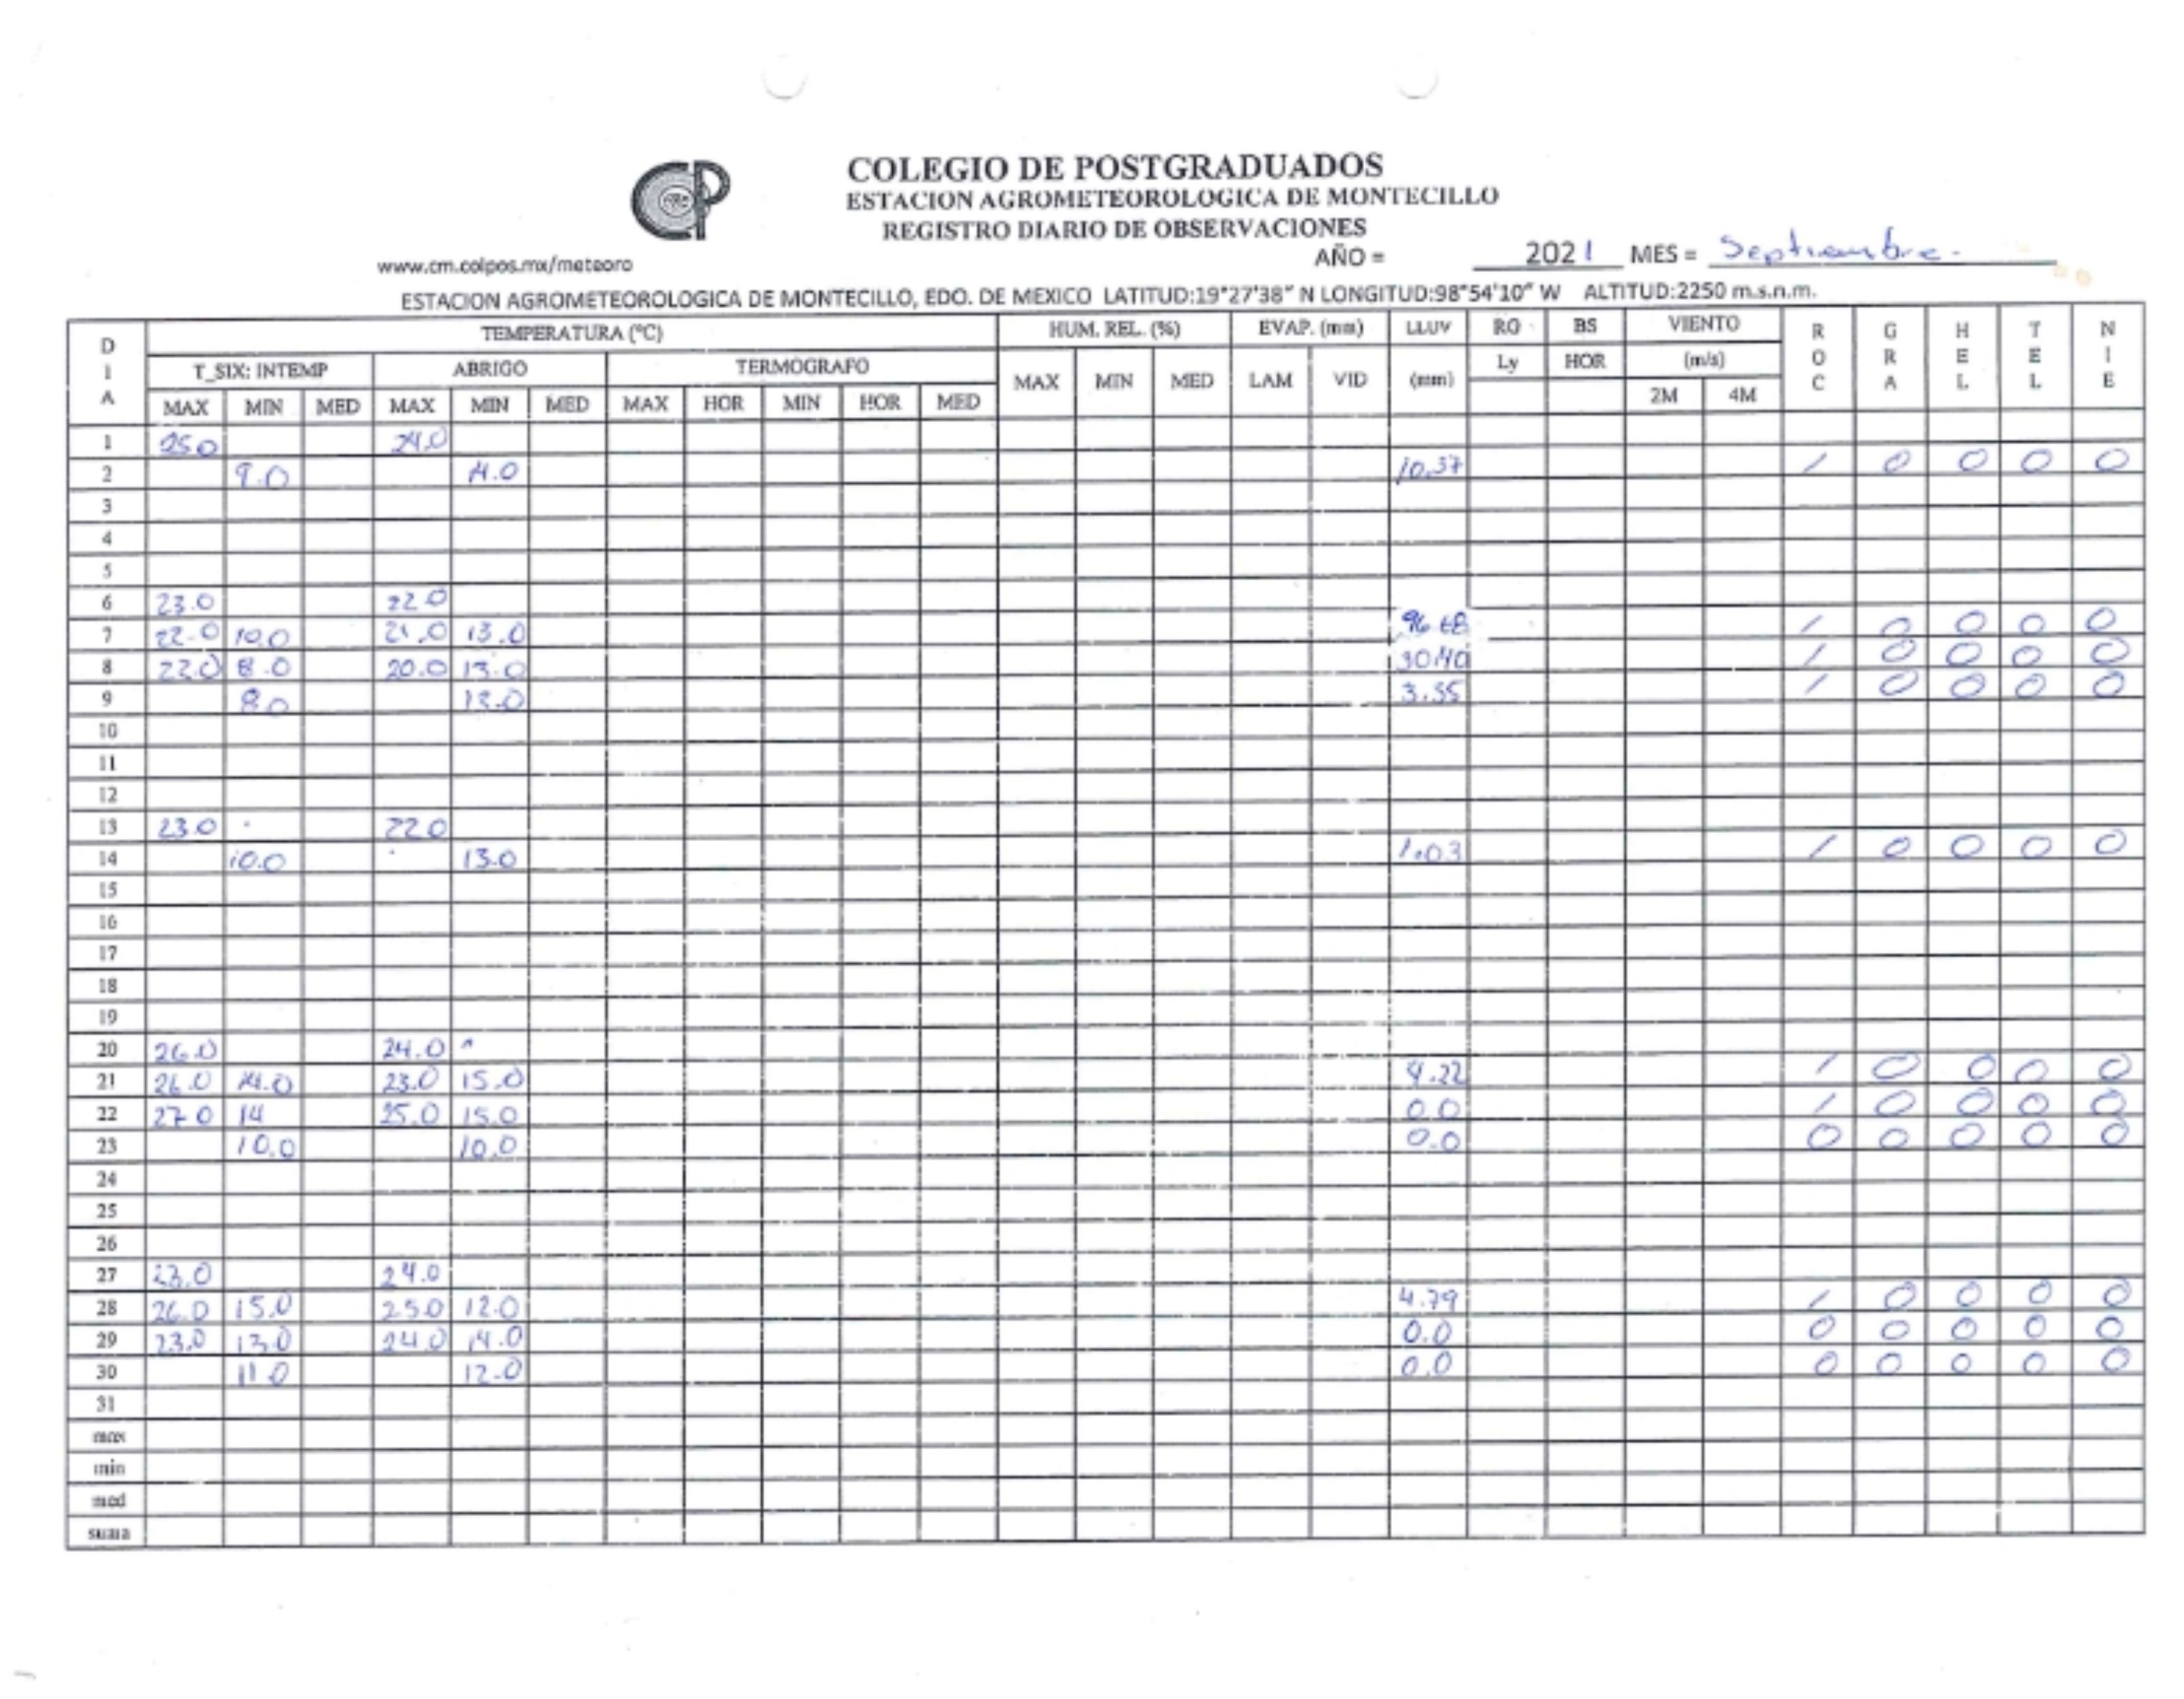 COLEGIO DE POSTGRADUADOS
ESTACION AGROMETEOROLOGICA DE MONTECILLO
REGISTRO DIARIO DE OBSERVACIONES
www.cm.colpos.mx/meteoro AÑO = 2021 MES = Septiembre.
ESTACION AGROMETEOROLOGICA DE MONTECILLO, EDO. DE MEXICO LATITUD:19°27'38" N LONGITUD:98°54'10" W ALTITUD:2250 m.s.n.m.
DIA TEMPERATURA (°C) HUM. REL. (%) EVAP. (mm) LLUV RG BS VIENTO ROC GRA HEL TEL NIE
T_SIX: INTEMP ABRIGO TERMOGRAFO MAX MIN MED LAM VID (mm) Ly HOR (m/s)
MAX MIN MED MAX MIN MED MAX HOR MIN HOR MED 2M 4M
1 25.0 24.0
2 9.0 10.37 / 0 0 0 0
3
4
5
6 23.0 22.0
7 22.0 10.0 21.0 13.0 / 0 0 0 0
8 22.0 8.0 20.0 13.0 30.40 / 0 0 0 0
9 8.0 13.0 3.35 / 0 0 0 0
10
11
12
13 23.0 22.0
14 10.0 13.0 1.03 / 0 0 0 0
15
16
17
18
19
20 26.0 24.0
21 26.0 14.0 23.0 15.0 / 0 0 0 0
22 27.0 14 25.0 15.0 0.0 / 0 0 0 0
23 10.0 10.0 0.0 0 0 0 0 0
24
25
26
27 23.0 24.0
28 26.0 15.0 25.0 12.0 4.79 / 0 0 0 0
29 23.0 13.0 24.0 14.0 0.0 0 0 0 0 0
30 11.0 12.0 0.0 0 0 0 0 0
31
max
min
med
suma